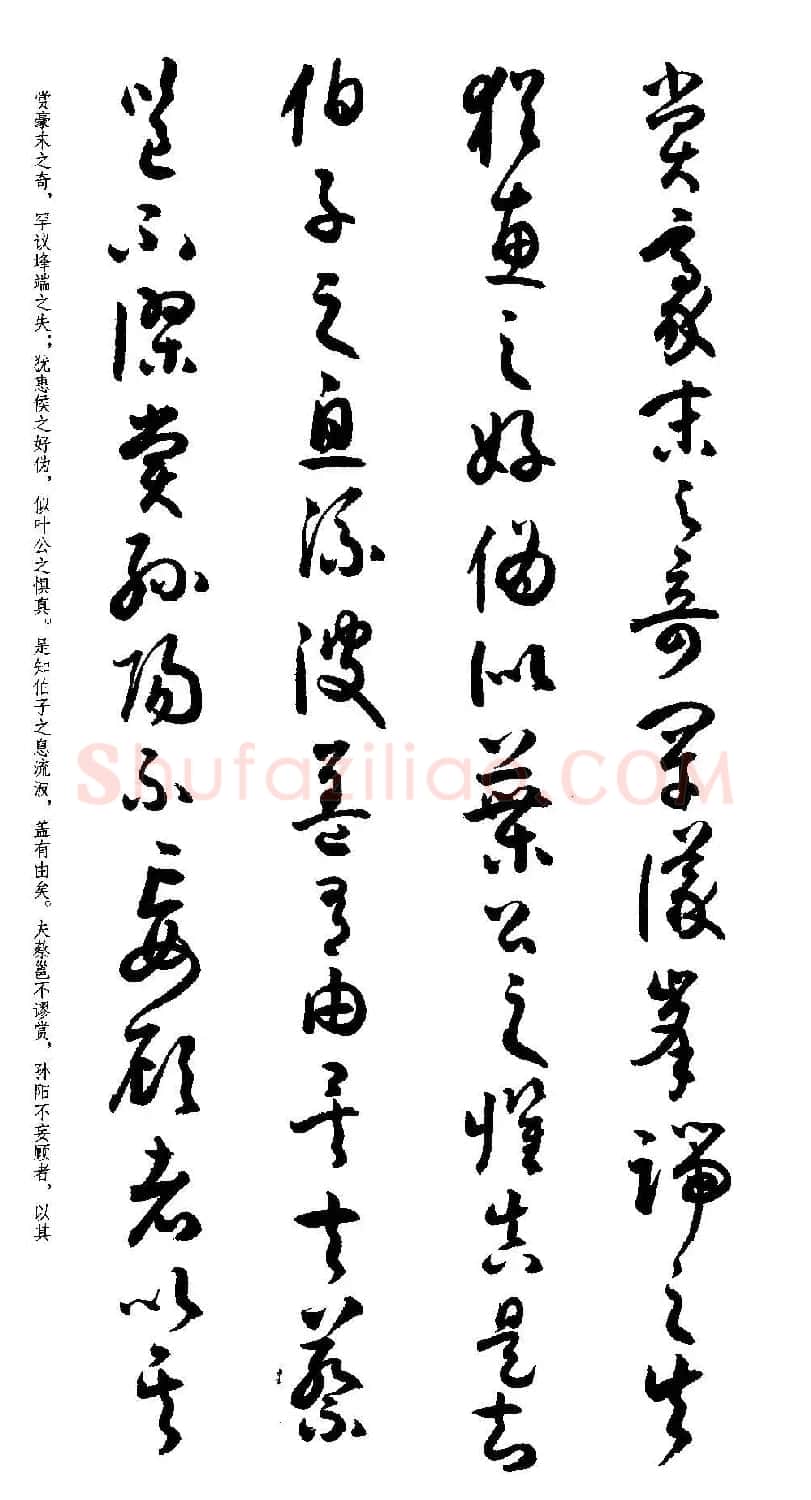 賞豪末之奇罕議峯端之失
猶惠之好偽似葉公之懼真是知
伯子之息流波蓋有由矣夫蔡
邕不謬賞孫陽不妄顧者以其
赏豪末之奇，罕议峰端之失；犹惠侯之好伪，似叶公之惧真。是知伯子之息流波，盖有由矣。夫蔡邕不谬赏，孙阳不妄顾者，以其
Shufaziliao.COM